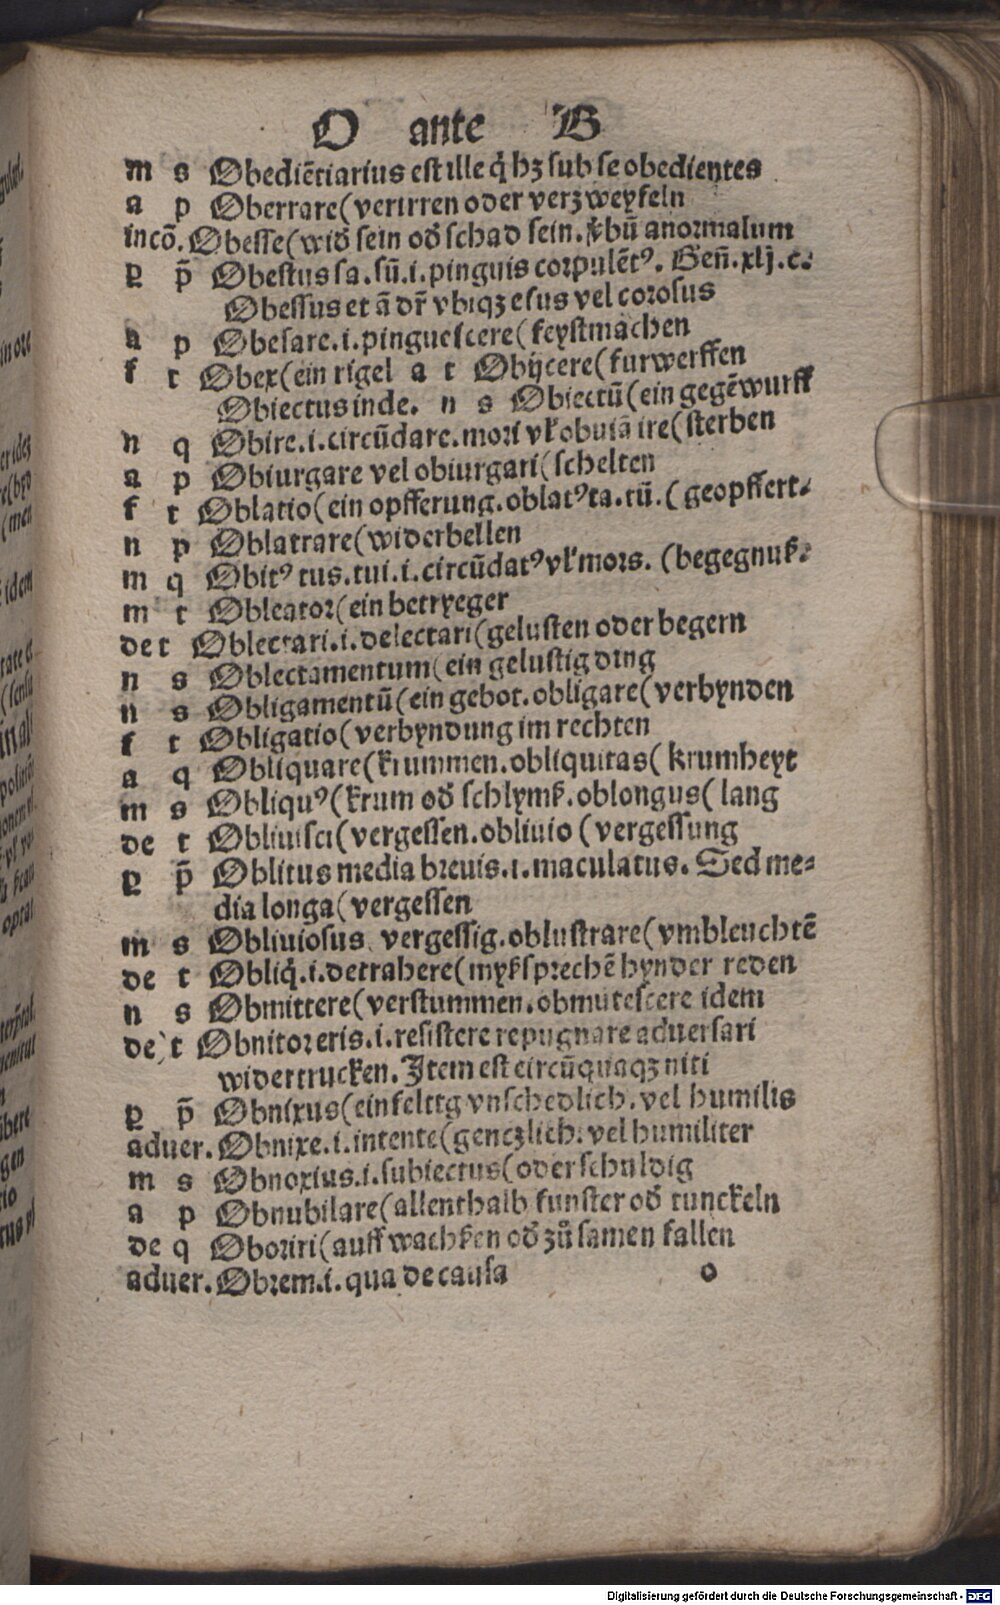 O ante B
m s Obediẽtiarius est ille q̇ hꝫ sub se obedientes
a p Oberrare(verirren oder verzweyfeln
incõ. Obesse(wid̕ sein od̕ schad sein. v̕bũ anormalum
ꝑ p̃ Obestus sa. sũ. i. pinguis corpulẽtꝰ. Geñ. xlj. c.
Obessus et ã dr̃ vbiqꝫ esus vel corosus
a p Obesare. i. pinguescere(feystmachen
f t Obex(ein rigel a t Obijcere(furwerffen
Obiectus inde. n s Obiectũ(ein gegẽwurff
n q Obire. i. circũdare. mori vl̕ obuiã ire(sterben
a p Obiurgare vel obiurgari(schelten
f t Oblatio(ein opfferung. oblatꝰ ta. tũ. (geopffert⸗
n p Oblatrare(widerbellen
m q Obitꝰ tus. tui. i. circũdatꝰ vl̕ mors. (begegnuß.
m t Obleator(ein betryeger
de t Oblectari. i. delectari(gelusten oder begern
n s Oblectamentum(ein gelustig ding
n s Obligamentũ(ein gebot. obligare(verbynden
f t Obligatio(verbyndung im rechten
a q Obliquare(krummen. obliquitas(krumheyt
m s Obliquꝰ(krum od̕ schlymß. oblongus(lang
de t Obliuisci(vergessen. obliuio(vergessung
ꝑ p̃ Oblitus media breuis. i. maculatus. Sed me⸗
dia longa(vergessen
m s Obliuiosus vergessig. oblustrare(vmbleuchtẽ
de t Obliq̇. i. detrahere(myßsprechẽ hynder reden
n s Obmittere(verstummen. obmutescere idem
de t Obnitor eris. i. resistere repugnare aduersari
widertrucken. Item est circũquaqꝫ niti
ꝑ p̃ Obnixus(einfeltig vnschedlich. vel humilis
aduer. Obnixe. i. intente(genczlich. vel humiliter
m s Obnoxius. i. subiectus(oder schuldig
a p Obnubilare(allenthalb funster od̕ tunckeln
de q Oboriri(auff wachßen od̕ zů samen fallen
aduer. Obrem. i. qua de causa o
Digitalisierung gefördert durch die Deutsche Forschungsgemeinschaft - DFG